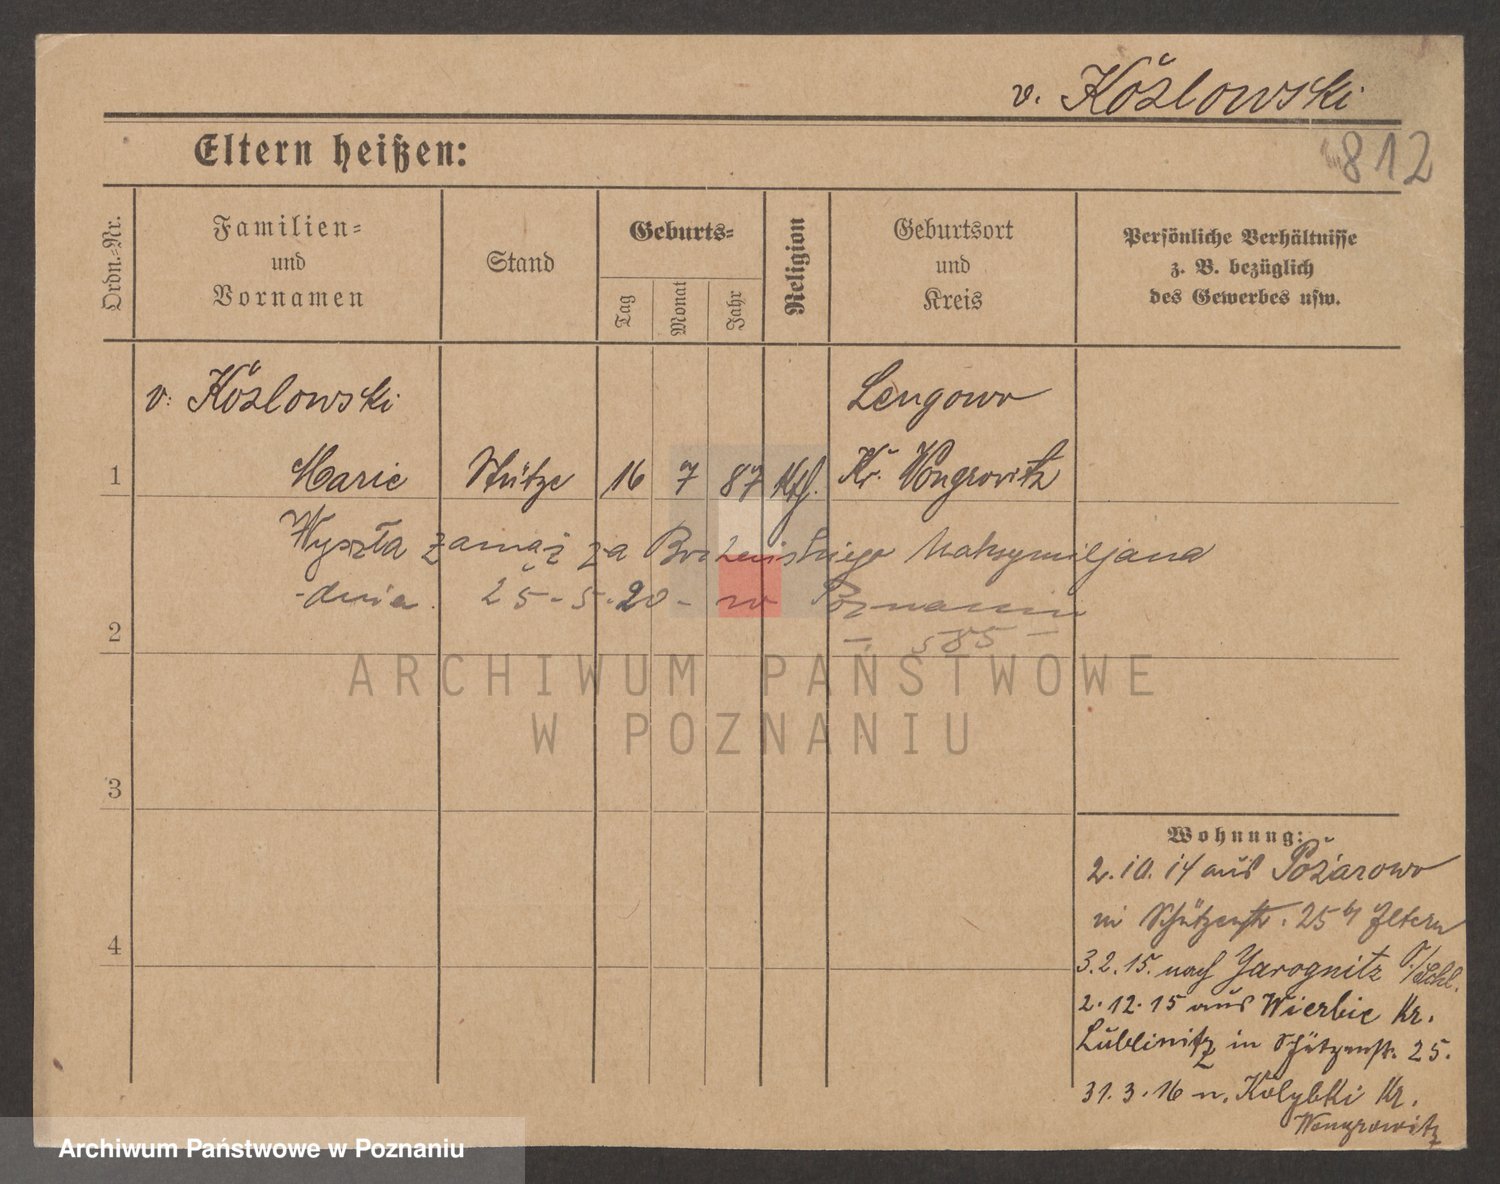 v. Kózlowski
812
Eltern heißen:
Ordn.=Nr.
Familien=
und
Vornamen
Stand
Geburts=
Tag
Monat
Jahr
Religion
Geburtsort
und
Kreis
Persönliche Verhältnisse
z. B. bezüglich
des Gewerbes usw.
v. Kózlowski
Lengowo
1 Marie Stütze 16 7 87 Kth. Kr. Wongrowitz
Wyszła zamąż za Maksymiljana
dnia 25-5-20 - w Poznaniu
2 - 585 -
ARCHIWUM PAŃSTWOWE
W POZNANIU
3
Wohnung:
2.10.14 aus Pożarowo
in Schützenstr. 25 b/ Eltern
4
3.2.15. nach Jarognitz O./Schl.
2.12.15 aus Wierbie Kr.
Lublinitz in Schützenstr. 25.
31.3.16 n. Kolybki Kr.
Wongrowitz
Archiwum Państwowe w Poznaniu